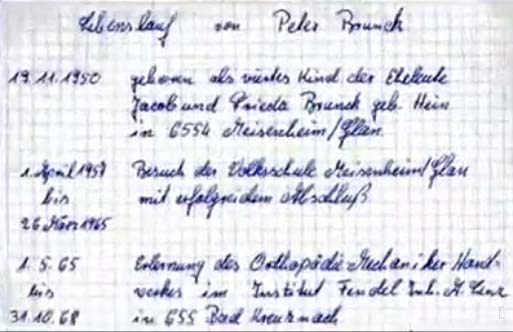 Lebenslauf von Peter Brunck
19.11.1950 geboren als viertes Kind der Eheleute
Jacob und Frieda Brunck geb. Hein
in 6554 Meisenheim/Glan
1. April 1957 Besuch der Volksschule Meisenheim/Glan
bis mit erfolgreichem Abschluß
26 März 1965
1. 5. 65 Erlernung des Orthopädie-Mechaniker Hand-
bis werkes im Institut Inh. A.
31.10.68 in 655 Bad Kreuznach